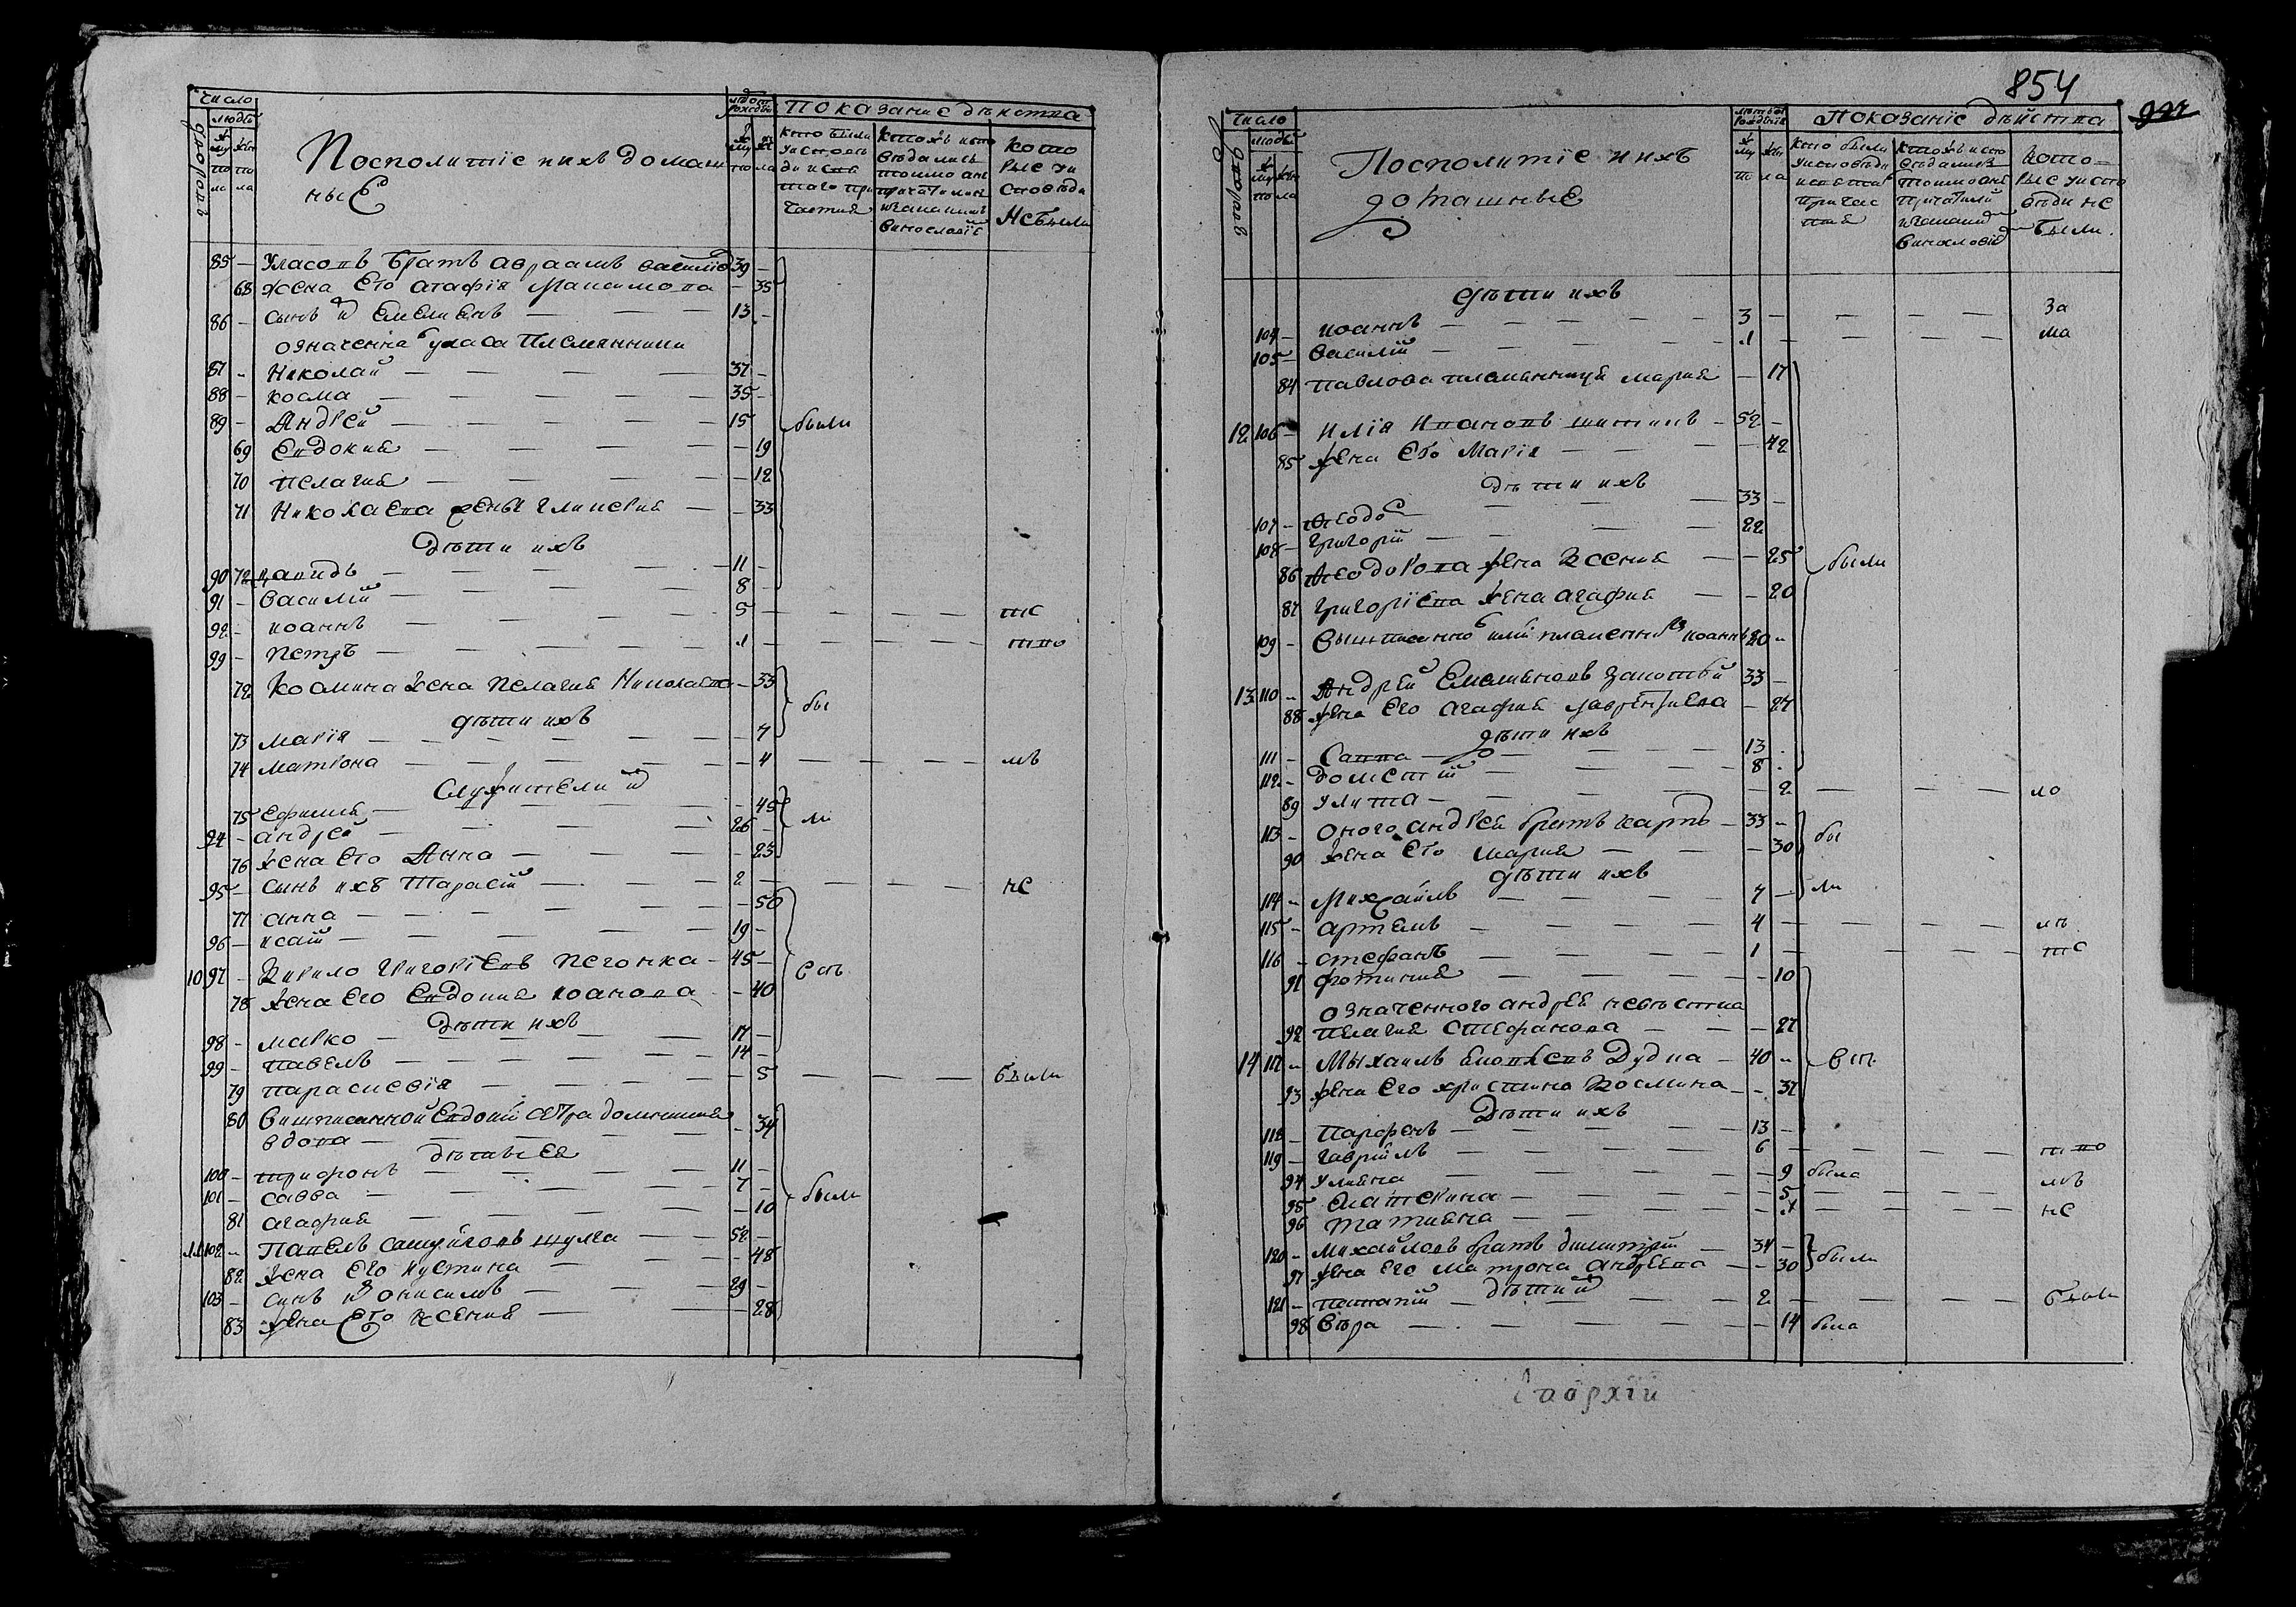 Число
людей
дворовъ
му
же
по
по
ла
ла
Посполитіе и ихъ домаш
ныЕ
лѣта от
рожденія
му
же
по
ла
Показание дѣиства
кто были
у исповѣ
ди и свя
таго при
частия
кто жъ испо
вѣдались
токмо а не
причастились
и за какимъ
винословіе
кото
рые у и
сповѣди
не были
85 – Уласовъ братъ авраамъ василіе 39 –
68 жена Его агафія Максимова – 35
86 – сынъ и Емелиенъ – – – 13 –
означенна уласа племянники
87 – Николай – – – 37 –
88 – косма – – – 35 –
89 – Андрей – – – 15 были
69 Евдокия – – – 19
70 пелагия – – – 12
71 Николаева жены гликерия – – 33
дѣти ихъ
90 72 давидъ – – – 11 –
91 – василий – – – 8 –
92 – иоаннъ – – – 5 – – – – те
99 – петръ – – – 1 – – – – тво
72 Космина жена пелагия Николаева – 33
дѣти ихъ бы
73 мария – – – 7
74 матрона – – – 4 – – – – лѣ
служители и
75 Ефимия – – – 45 ли
94 – андрей – – – 26 –
76 жена Его Анна – – – 23
95 – сынъ ихъ Тарасій – – 2 – – – – не
77 анна – – – 50
96 – исаій – – – 19 –
10 97 – Кирило Григориевъ пегонка – 45 – всѣ
78 жена Его Евдокия иоанова – 40
дѣти ихъ
98 – марко – – – 17 –
99 – павелъ – – – 14 –
79 параскевія – – – 5 – – – – были
80 вишписанной Евдокій сестра домникия
вдова – – – 34
дѣти Ея
100 – трифонъ – – – 11 –
101 – савва – – – 7 – были
81 агафия – – – 10
11 102 – Павелъ самуйловъ шулга – – 52 –
82 жена Его иустина – – 48
103 – синъ и онисимъ – – 29 –
83 жена Его ксения – – 28
854
Число
людей
дворовъ
му
же
по
ла
Посполитіе и ихъ
домашныЕ
лѣта от
рожденія
му
же
по
ла
Показаніе дѣиства
кто были
у исповѣди
и святаго
причас
тия
кто жъ испо
вѣдались
токмо а не
причастили
и за каким
винословіе
кото–
рые у испо
вѣди не
были.
дѣти ихъ
104 – иоаннъ – – – 3 – – – – за
105 – василій – – – 1 – – – – ма
84 павлова племянница мария – 17
12 106 – илія ивановъ шитикъ – 52 –
85 жена Его Мария – – – 42
дѣти ихъ
107 – Феодо – – – 33 –
108 – григорій – – – 22
86 Феодорова жена Ксения – – 25 были
87 григоріева жена агафия – – 20
109 – вышписанно илій племенни иоаннъ 20 –
13 110 – Андрей Емелияновъ 33 –
88 жена Его агафия лаврентиева – 27
дѣти ихъ
111 – Савва – – – 13 –
112 – дометій – – – 8 –
89 улита – – – 2 – – – ло
113 – оного андрея братъ карпъ – 33 – бы
90 жена Его мария – – – 30
дѣти ихъ
114 – Михаилъ – – – 7 – ли
115 – артемъ – – – 4 – – – – лѣ
116 – стефанъ – – – 1 – – – – те
91 фотиния – – – 10
означенного андрея невѣстка
92 пелагия Стефанова – – – 27
14 117 – Мыхаилъ Дудка – 40 – всѣ
93 жена Его христина Космина – – 37
Дѣти ихъ
118 – Парфенъ – – – 13 –
119 – гавриилъ – – – 6 – – – – тво
94 улияна – – – 9 была
95 Екатерина – – – 5 – – – – лѣ
96 татияна – – – 1 – – – – не
120 – михайловъ братъ димитрій – 34 –
97 жена его матрона андреева – – 30 были
дѣти и
121 – потапій – – – 2 – – – – были
98 вѣра – – – 14 была
Епархіи